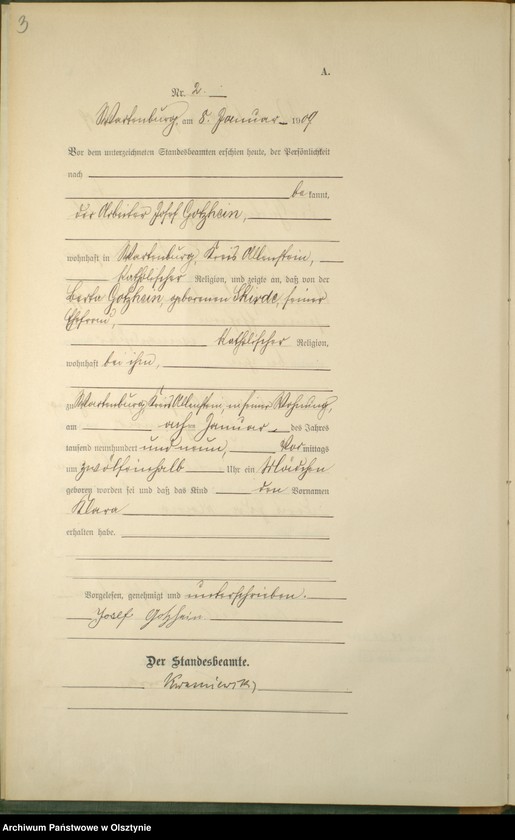 3
A.
Nr. 2
Wartenburg, am 8. Januar 1909
Vor dem unterzeichneten Standesbeamten erschien heute, der Persönlichkeit
nach
bekannt,
der Arbeiter Josef Gotzhein,
wohnhaft in Wartenburg, Kreis Allenstein,
katholischer Religion, und zeigte an, daß von der
Berta Gotzhein, geborenen Skirde, seiner
Ehefrau,
katholischer Religion,
wohnhaft bei ihm,
zu Wartenburg, Kreis Allenstein, in seiner Wohnung,
am acht Januar des Jahres
tausend neunhundert und neun, Vormittags
um zwölfeinhalb Uhr ein Mädchen
geboren worden sei und daß das Kind den Vornamen
Klara
erhalten habe.
Vorgelesen, genehmigt und unterschrieben.
Josef Gotzhein
Der Standesbeamte.
Archiwum Państwowe w Olsztynie